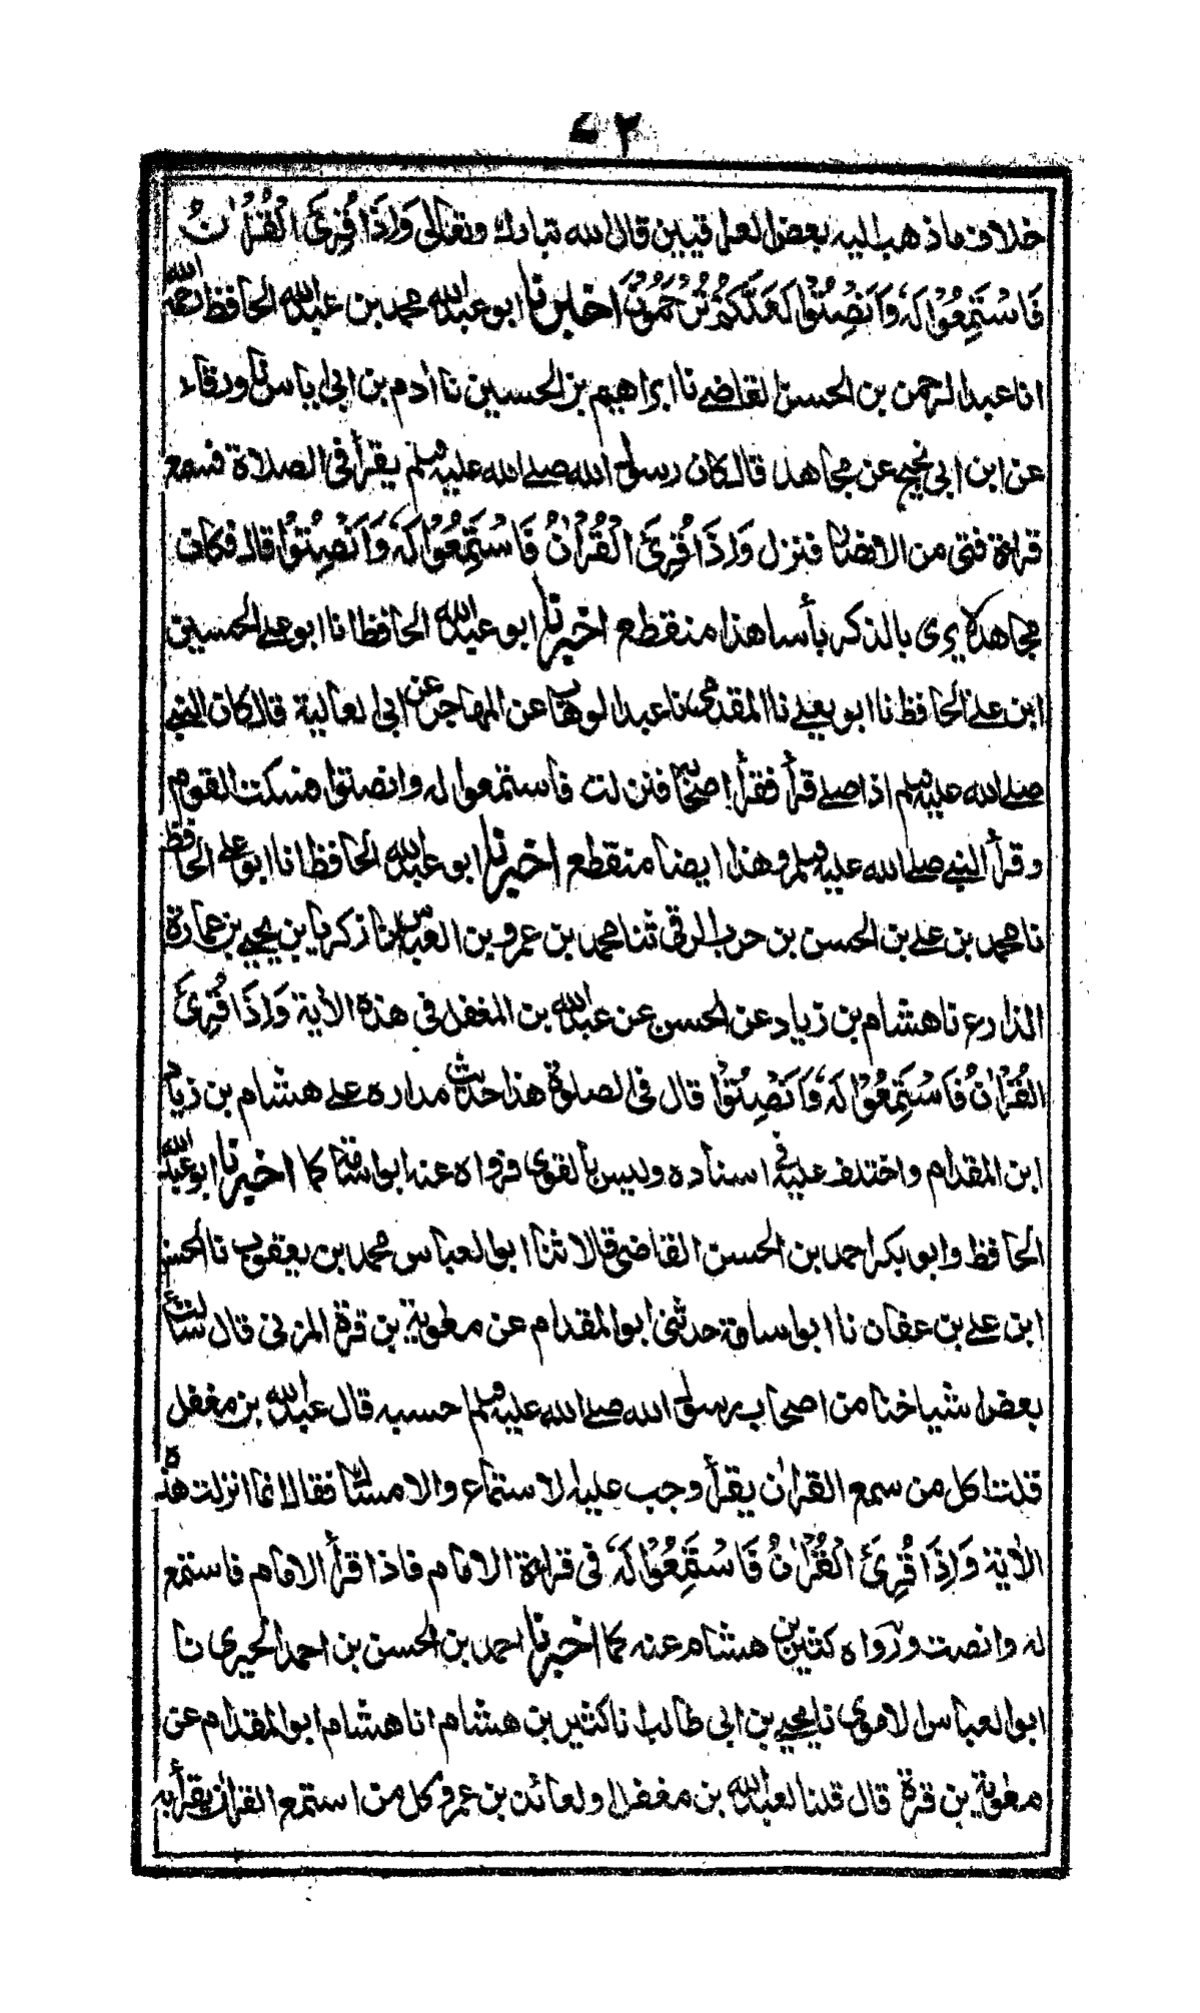 ٧٢
خلاف ما ذهب اليه بعض العراقيين قال الله تبارك وتعالى وَاِذَا قُرِئَ الْقُرْاٰنُ
فَاسْتَمِعُوْا لَهٗ وَاَنْصِتُوْا لَعَلَّكُمْ تُرْحَمُوْنَ اخبرنا ابو عبدالله محمد بن عبدالله الحافظ رحمه الله
انا عبد الرحمن بن الحسن القاضي نا ابراهيم بن الحسين نا ادم بن ابى اياس نا ورقاء
عن ابن ابى نجيح عن مجاهد قال كان رسول الله صلى الله عليه وسلم يقرأ فى الصلاة فسمع
قراءة فتى من الانصار فنزل وَاِذَا قُرِئَ الْقُرْاٰنُ فَاسْتَمِعُوْا لَهٗ وَاَنْصِتُوْا قال فكان
مجاهد لا يرى بالذكر بأسا هذا منقطع اخبرنا ابو عبدالله الحافظ انا ابو على الحسين
ابن على الحافظ نا ابو يعلى نا المقدمى نا عبد الوهاب عن المهاجر عن ابى العالية قال كان النبى
صلى الله عليه وسلم اذا صلى قرأ فقرأ اصحابه فنزلت فاستمعوا له وانصتوا فسكت القوم
وقرأ النبى صلى الله عليه وسلم وهذا ايضا منقطع اخبرنا ابو عبدالله الحافظ انا ابو على الحافظ
نا محمد بن على بن الحسن بن حرب الرقى ثنا محمد بن عمرو بن العباس نا زكريا بن يحيى بن عمارة
الذارع نا هشام بن زياد عن الحسن عن عبدالله بن المغفل فى هذه الأية وَاِذَا قُرِئَ
الْقُرْاٰنُ فَاسْتَمِعُوْا لَهٗ وَاَنْصِتُوْا قال فى الصلوة هذا حديث مداره على هشام بن زياد
ابن المقدام واختلف عليه فى اسناده وليس بالقوى فرواه عنه ابو اسامة كما اخبرنا ابو عبدالله
الحافظ وابو بكر احمد بن الحسن القاضى قالا ثنا ابو العباس محمد بن يعقوب نا الحسن
ابن على بن عفان نا ابو اسامة حدثنى ابو المقدام عن معاوية بن قرة المزنى قال سألت
بعض اشياخنا من اصحاب رسول الله صلى الله عليه وسلم احسبه قال عبدالله بن مغفل
قلنا كل من سمع القرأن يقرأ وجب عليه الاستماع والامساك فقال انما انزلت هذه
الأية وَاِذَا قُرِئَ الْقُرْاٰنُ فَاسْتَمِعُوْا لَهٗ فى قراءة الامام فاذا قرأ الامام فاستمع
له وانصت ورواه كثير بن هشام عنه كما اخبرنا احمد بن الحسن بن احمد الحيرى نا
ابو العباس الاموى نا يحيى بن ابى طالب نا كثير بن هشام انا هشام ابو المقدام عن
معاوية بن قرة قال قلنا لعبدالله بن مغفل ولعائذ بن عمرو كل من استمع القرأن يقرأ به